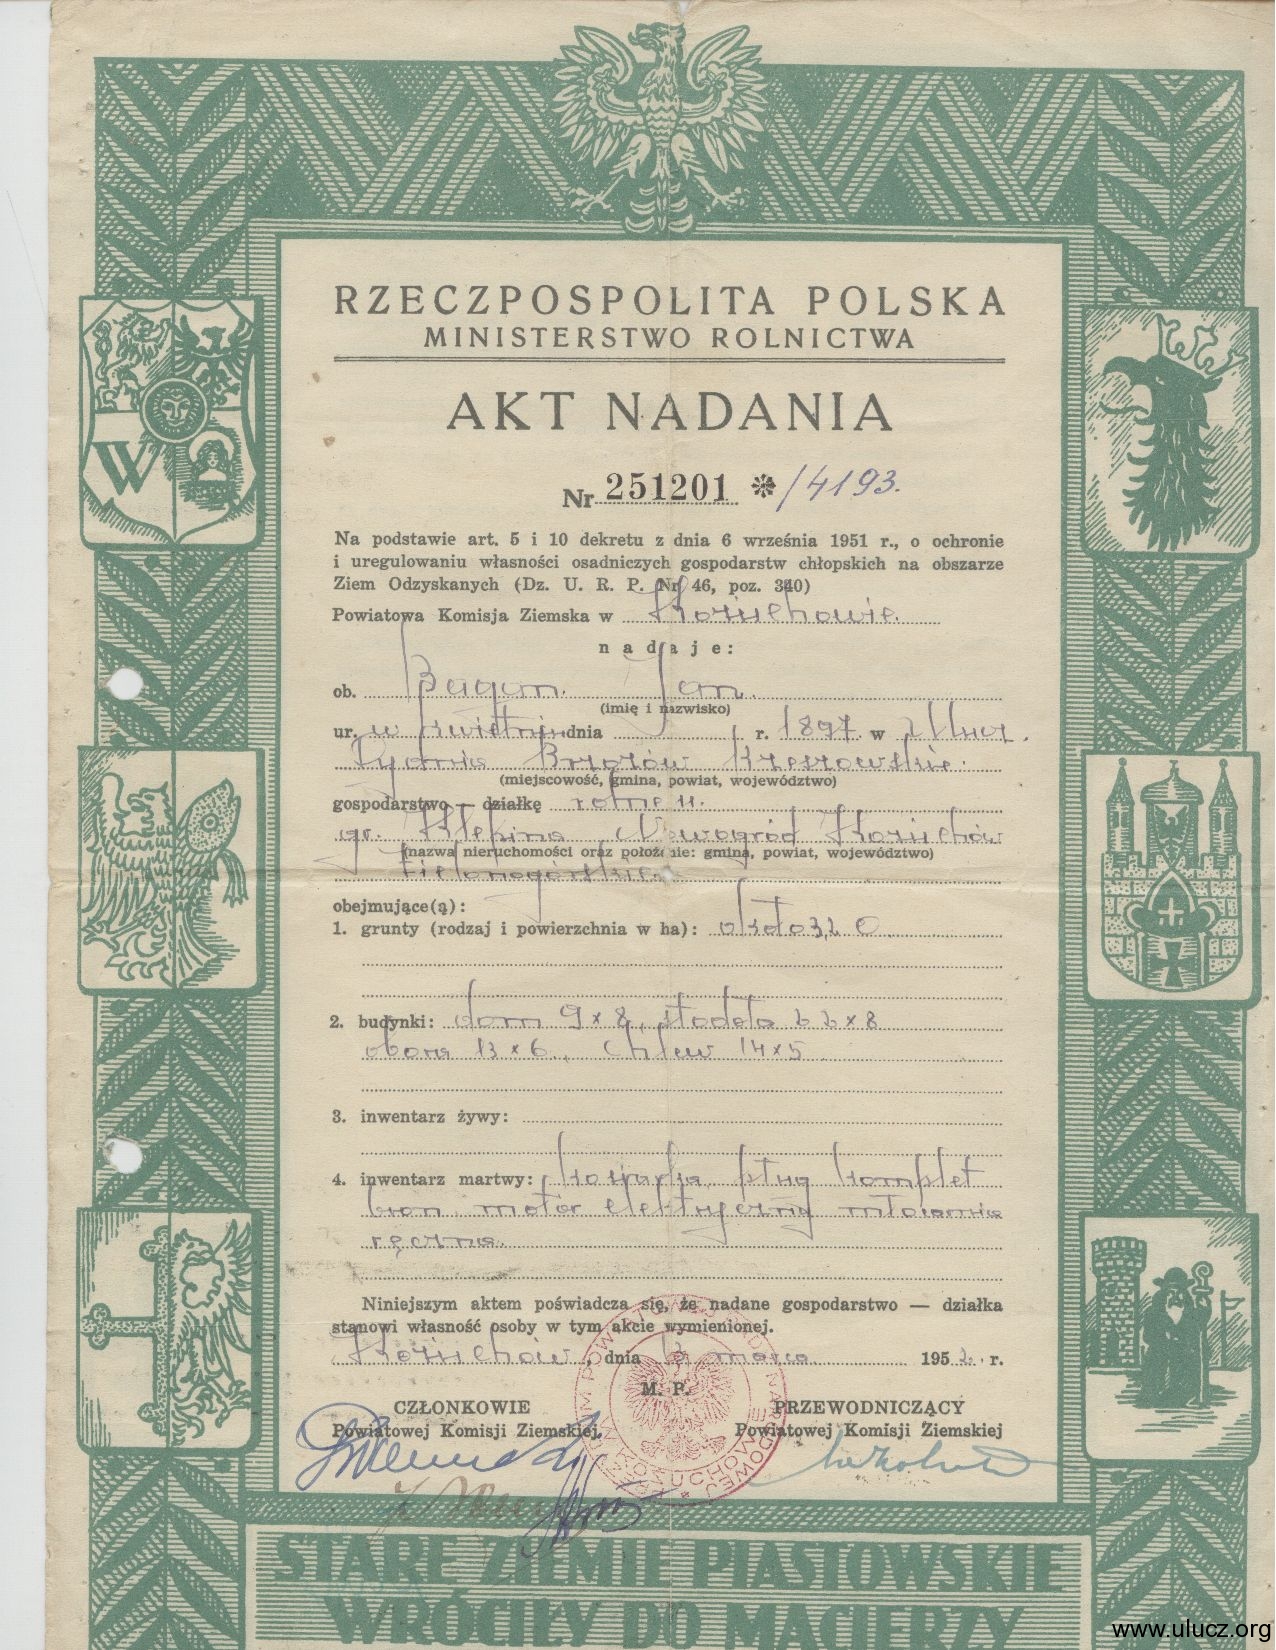 RZECZPOSPOLITA POLSKA
MINISTERSTWO ROLNICTWA
AKT NADANIA
Nr 251201 ✻ /4193.
Na podstawie art. 5 i 10 dekretu z dnia 6 września 1951 r., o ochronie
i uregulowaniu własności osadniczych gospodarstw chłopskich na obszarze
Ziem Odzyskanych (Dz. U. R. P. Nr 46, poz. 340)
Powiatowa Komisja Ziemska w Kożuchowie.
nadaje:
ob. Bagan. Jan.
(imię i nazwisko)
ur. w kwietniu dnia r. 1897 w Ulucz.
Dydnia Brzozów Rzeszowskie.
(miejscowość, gmina, powiat, województwo)
gospodarstwo — działkę rolne
gr. Klępina Nowogród Kożuchów
(nazwa nieruchomości oraz położenie: gmina, powiat, województwo)
zielonogórskie.
obejmujące(ą):
1. grunty (rodzaj i powierzchnia w ha): około
2. budynki: dom 9x8, stodoła x8
obora 13x6, chlew 14x5
3. inwentarz żywy:
4. inwentarz martwy: kosiarka, pług komplet
bron motor elektryczny młocarnia
ręczna.
Niniejszym aktem poświadcza się, że nadane gospodarstwo — działka
stanowi własność osoby w tym akcie wymienionej.
Kożuchów, dnia marca 1952. r.
M. P.
CZŁONKOWIE
Powiatowej Komisji Ziemskiej
PRZEWODNICZĄCY
Powiatowej Komisji Ziemskiej
STARE ZIEMIE PIASTOWSKIE
WRÓCIŁY DO MACIERZY
W
www.ulucz.org